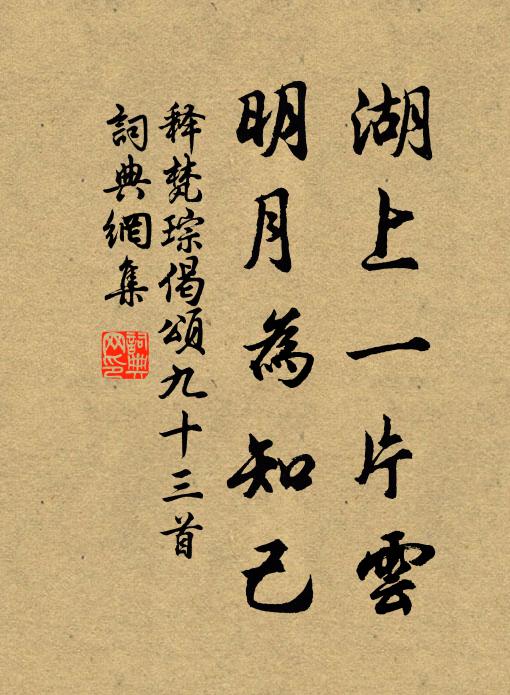 湖上一片雲
明月為知己
释梵琮偈頌九十三首
詞典網集
詞典
网印